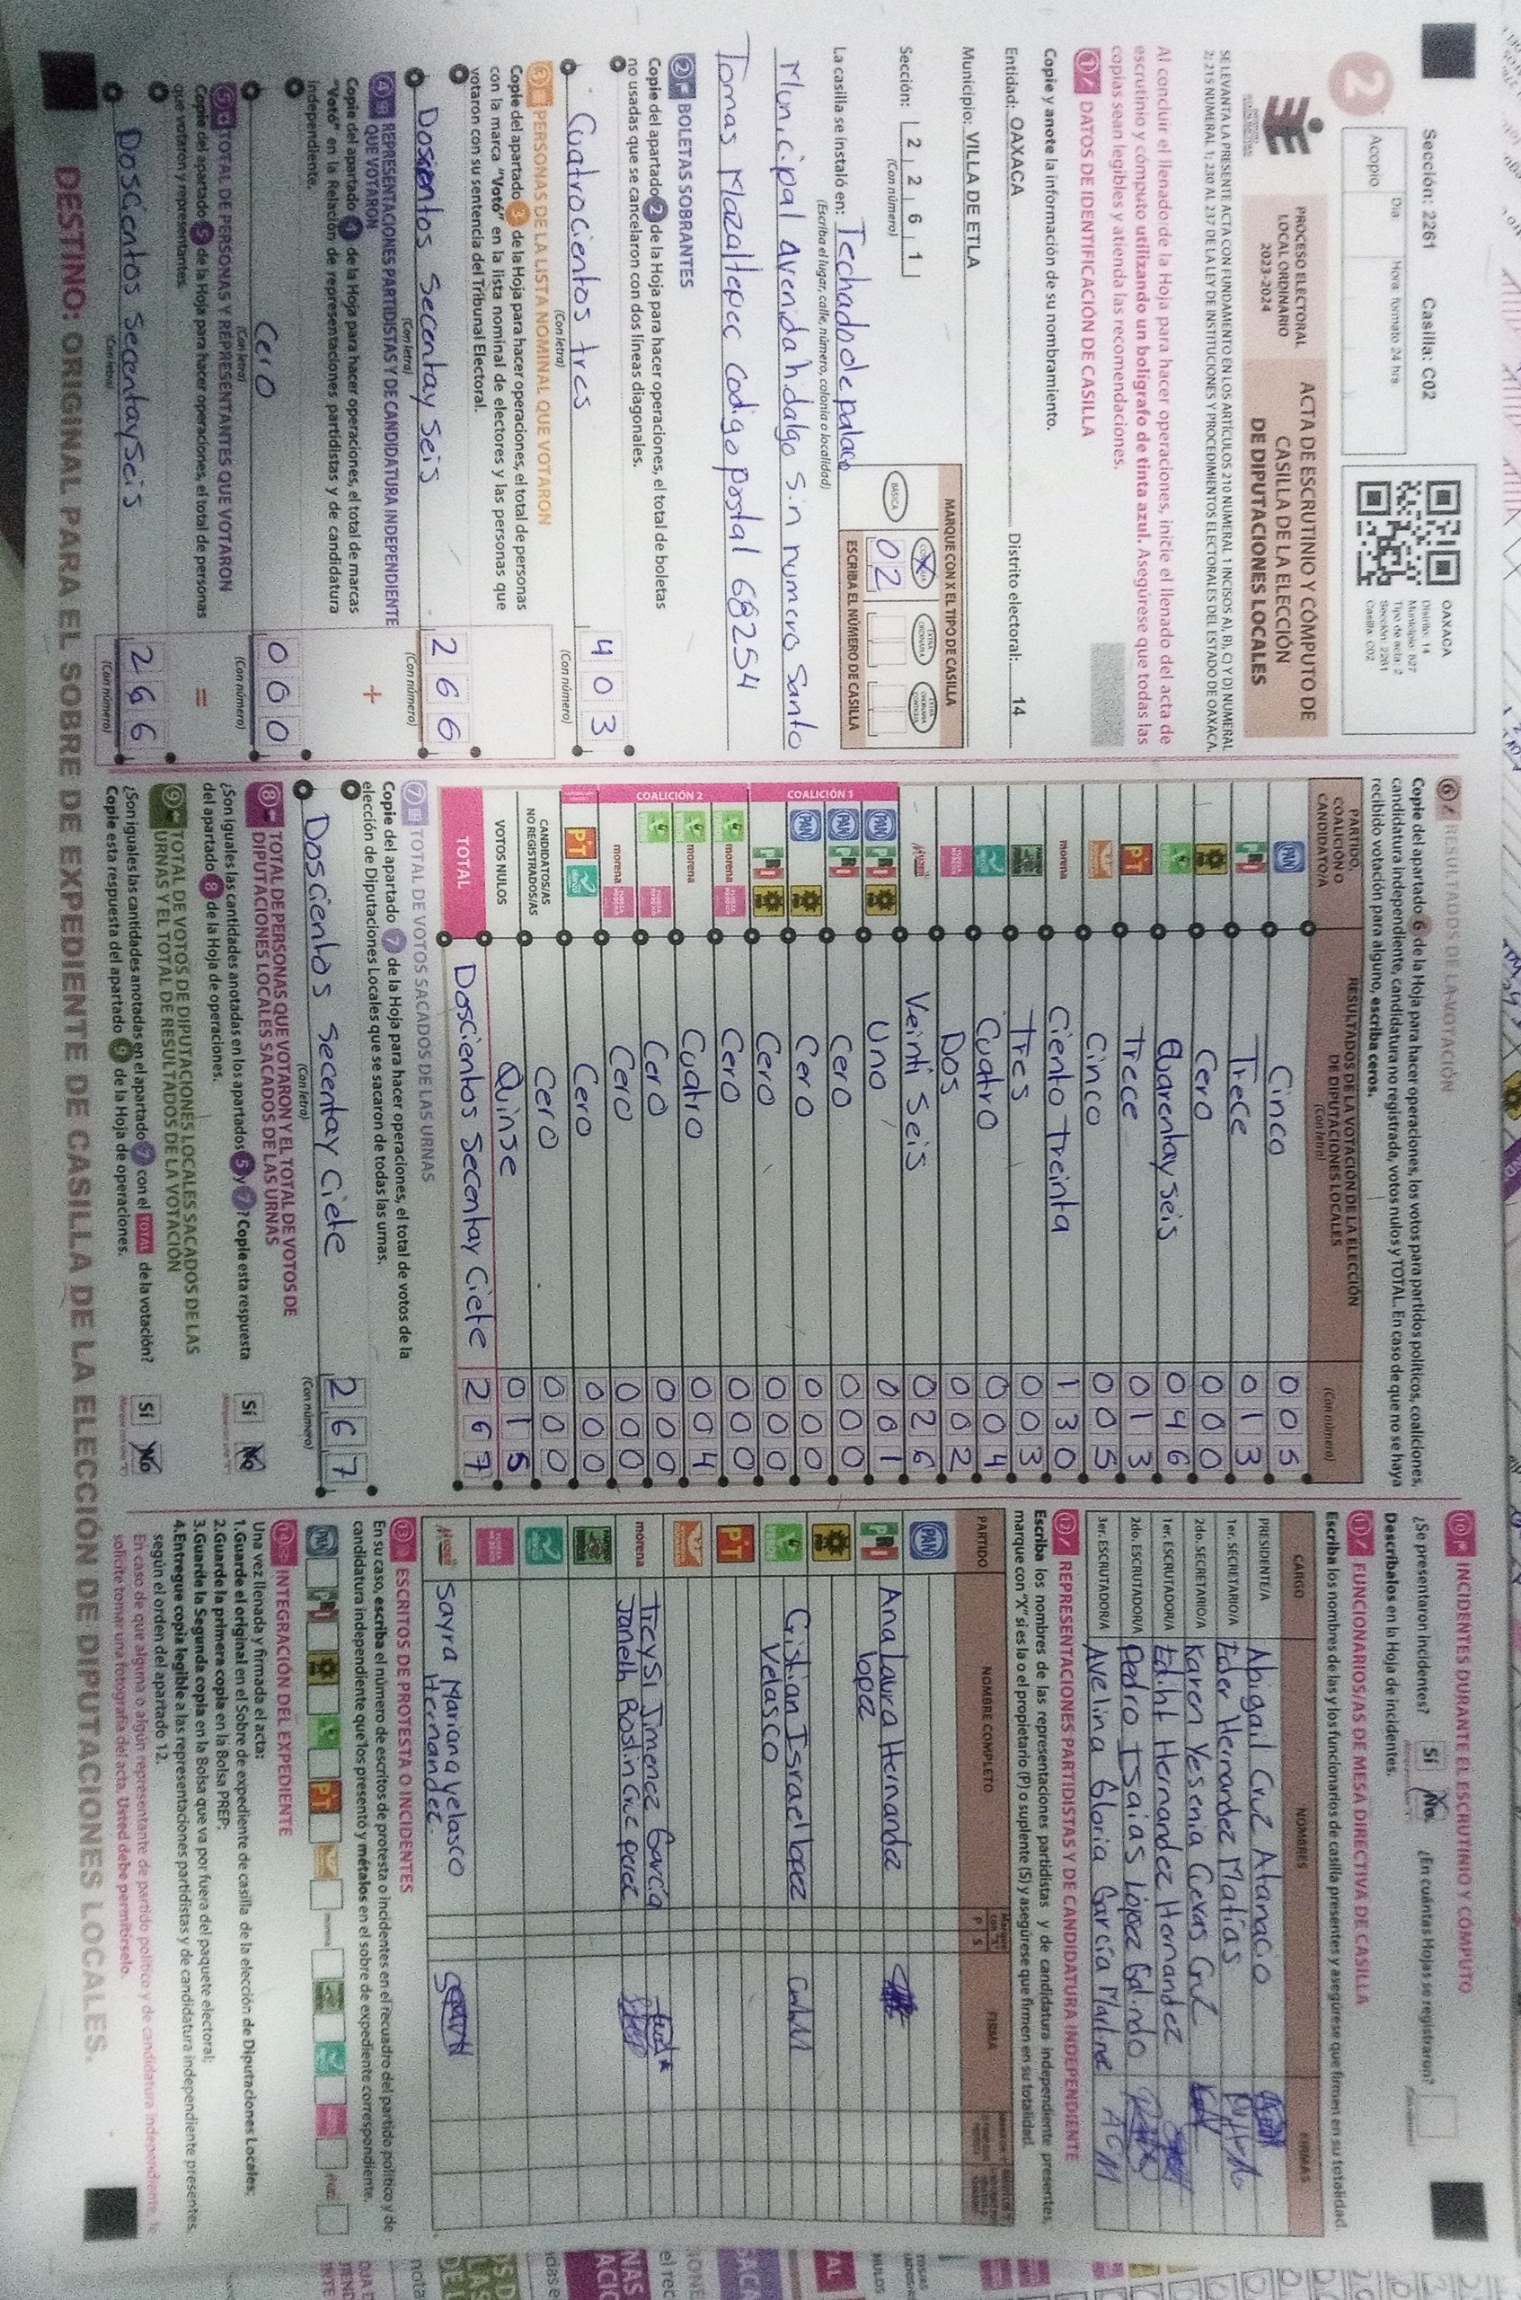 Sección: 2261 Casilla: C02
2
Acopio
Día
Hora formato 24 hrs
OAXACA
Distrito: 14
Municipio: 527
Tipo de acta: 2
Sección: 2261
Casilla: C02
PROCESO ELECTORAL
LOCAL ORDINARIO
2023-2024
ACTA DE ESCRUTINIO Y CÓMPUTO DE
CASILLA DE LA ELECCIÓN
DE DIPUTACIONES LOCALES
SE LEVANTA LA PRESENTE ACTA CON FUNDAMENTO EN LOS ARTÍCULOS 210 NUMERAL 1 INCISOS A), B), C) Y D) NUMERAL
2; 215 NUMERAL 1; 230 AL 237 DE LA LEY DE INSTITUCIONES Y PROCEDIMIENTOS ELECTORALES DEL ESTADO DE OAXACA.
Al concluir el llenado de la Hoja para hacer operaciones, inicie el llenado del acta de
escrutinio y cómputo utilizando un bolígrafo de tinta azul. Asegúrese que todas las
copias sean legibles y atienda las recomendaciones.
1 DATOS DE IDENTIFICACIÓN DE CASILLA
Copie y anote la información de su nombramiento.
Entidad: OAXACA Distrito electoral: 14
Municipio: VILLA DE ETLA
Sección: 2 2 6 1
(Con número)
MARQUE CON X EL TIPO DE CASILLA
BÁSICA
ESCRIBA EL NÚMERO DE CASILLA
02
La casilla se instaló en: Techado de palacio
(Escriba el lugar, calle, número, colonia o localidad)
Municipal Avenida hidalgo sin numero Santo
Tomas Mazaltepec codigo postal 68254
2 BOLETAS SOBRANTES
Copie del apartado 2 de la Hoja para hacer operaciones, el total de boletas
no usadas que se cancelaron con dos líneas diagonales.
Cuatrocientos tres 403
(Con letra) (Con número)
3 PERSONAS DE LA LISTA NOMINAL QUE VOTARON
Copie del apartado 3 de la Hoja para hacer operaciones, el total de personas
con la marca "Votó" en la lista nominal de electores y las personas que
votaron con su sentencia del Tribunal Electoral.
Doscientos Secentay Seis 266
(Con letra) (Con número)
4 REPRESENTACIONES PARTIDISTAS Y DE CANDIDATURA INDEPENDIENTE
QUE VOTARON
+
Copie del apartado 4 de la Hoja para hacer operaciones, el total de marcas
"Votó" en la Relación de representaciones partidistas y de candidatura
independiente.
Cero 000
(Con letra) (Con número)
5 TOTAL DE PERSONAS Y REPRESENTANTES QUE VOTARON
=
Copie del apartado 5 de la Hoja para hacer operaciones, el total de personas
que votaron y representantes.
Doscientos Secentay Seis 266
(Con letra) (Con número)
6 RESULTADOS DE LA VOTACIÓN
Copie del apartado 6 de la Hoja para hacer operaciones, los votos para partidos políticos, coaliciones,
candidatura independiente, candidatura no registrada, votos nulos y TOTAL. En caso de que no se haya
recibido votación para alguno, escriba ceros.
PARTIDO, COALICIÓN O CANDIDATO/A
RESULTADOS DE LA VOTACIÓN DE LA ELECCIÓN
DE DIPUTACIONES LOCALES
(Con letra) (Con número)
PAN Cinco 005
PRI Trece 013
PRD Cero 000
Cuarentay seis 046
PT Trece 013
Cinco 005
morena Ciento treinta 130
Tres 003
Cuatro 004
Dos 002
Veinti Seis 026
COALICIÓN 1
PAN PRI PRD Uno 001
PAN PRI Cero 000
PAN PRD Cero 000
PRI PRD Cero 000
COALICIÓN 2
morena Cero 000
morena Cuatro 004
Cero 000
morena Cero 000
PT Cero 000
CANDIDATOS/AS
NO REGISTRADOS/AS Cero 000
VOTOS NULOS Quinse 015
TOTAL Doscientos Secentay Ciete 267
7 TOTAL DE VOTOS SACADOS DE LAS URNAS
Copie del apartado 7 de la Hoja para hacer operaciones, el total de votos de la
elección de Diputaciones Locales que se sacaron de todas las urnas.
Doscientos Secentay Ciete 267
(Con letra) (Con número)
8 TOTAL DE PERSONAS QUE VOTARON Y EL TOTAL DE VOTOS DE
DIPUTACIONES LOCALES SACADOS DE LAS URNAS
¿Son iguales las cantidades anotadas en los apartados 5 y 7? Copie esta respuesta
del apartado 8 de la Hoja de operaciones. Sí No
9 TOTAL DE VOTOS DE DIPUTACIONES LOCALES SACADOS DE LAS
URNAS Y EL TOTAL DE RESULTADOS DE LA VOTACIÓN
¿Son iguales las cantidades anotadas en el apartado 7 con el TOTAL de la votación?
Copie esta respuesta del apartado 9 de la Hoja de operaciones. Sí No
10 INCIDENTES DURANTE EL ESCRUTINIO Y CÓMPUTO
¿Se presentaron incidentes? Sí No ¿En cuántas Hojas se registraron?
Descríbalos en la Hoja de incidentes.
11 FUNCIONARIOS/AS DE MESA DIRECTIVA DE CASILLA
Escriba los nombres de las y los funcionarios de casilla presentes y asegúrese que firmen en su totalidad.
CARGO NOMBRES FIRMAS
PRESIDENTE/A Abigail Cruz Atanacio
1er. SECRETARIO/A Eder Hernandez Matías
2do. SECRETARIO/A Karen Yesenia Cuevas Cruz
1er. ESCRUTADOR/A Ediht Hernandez Hernandez
2do. ESCRUTADOR/A Pedro Isaias López Galindo
3er. ESCRUTADOR/A Avelina Gloria García Martínez AGM
12 REPRESENTACIONES PARTIDISTAS Y DE CANDIDATURA INDEPENDIENTE
Escriba los nombres de las representaciones partidistas y de candidatura independiente presentes,
marque con "X" si es la o el propietario (P) o suplente (S) y asegúrese que firmen en su totalidad.
PARTIDO NOMBRE COMPLETO P S FIRMA
PAN
PRI Ana Laura Hernandez
lopez
PRD
Cristian Israel lopez
Velasco
PT
morena Treysi Jimenez García
Janeth Roslin Cruz perez
Sayra Mariana velasco
Hernandez.
13 ESCRITOS DE PROTESTA O INCIDENTES
En su caso, escriba el número de escritos de protesta o incidentes en el recuadro del partido político y de
candidatura independiente que los presentó y métalos en el sobre de expediente correspondiente.
14 INTEGRACIÓN DEL EXPEDIENTE
Una vez llenada y firmada el acta:
1.Guarde el original en el Sobre de expediente de casilla de la elección de Diputaciones Locales;
2.Guarde la primera copia en la Bolsa PREP;
3.Guarde la Segunda copia en la Bolsa que va por fuera del paquete electoral;
4.Entregue copia legible a las representaciones partidistas y de candidatura independiente presentes,
según el orden del apartado 12.
En caso de que alguna o algún representante de partido político y de candidatura independiente, le
solicite tomar una fotografía del acta, Usted debe permitírselo.
DESTINO: ORIGINAL PARA EL SOBRE DE EXPEDIENTE DE CASILLA DE LA ELECCIÓN DE DIPUTACIONES LOCALES.